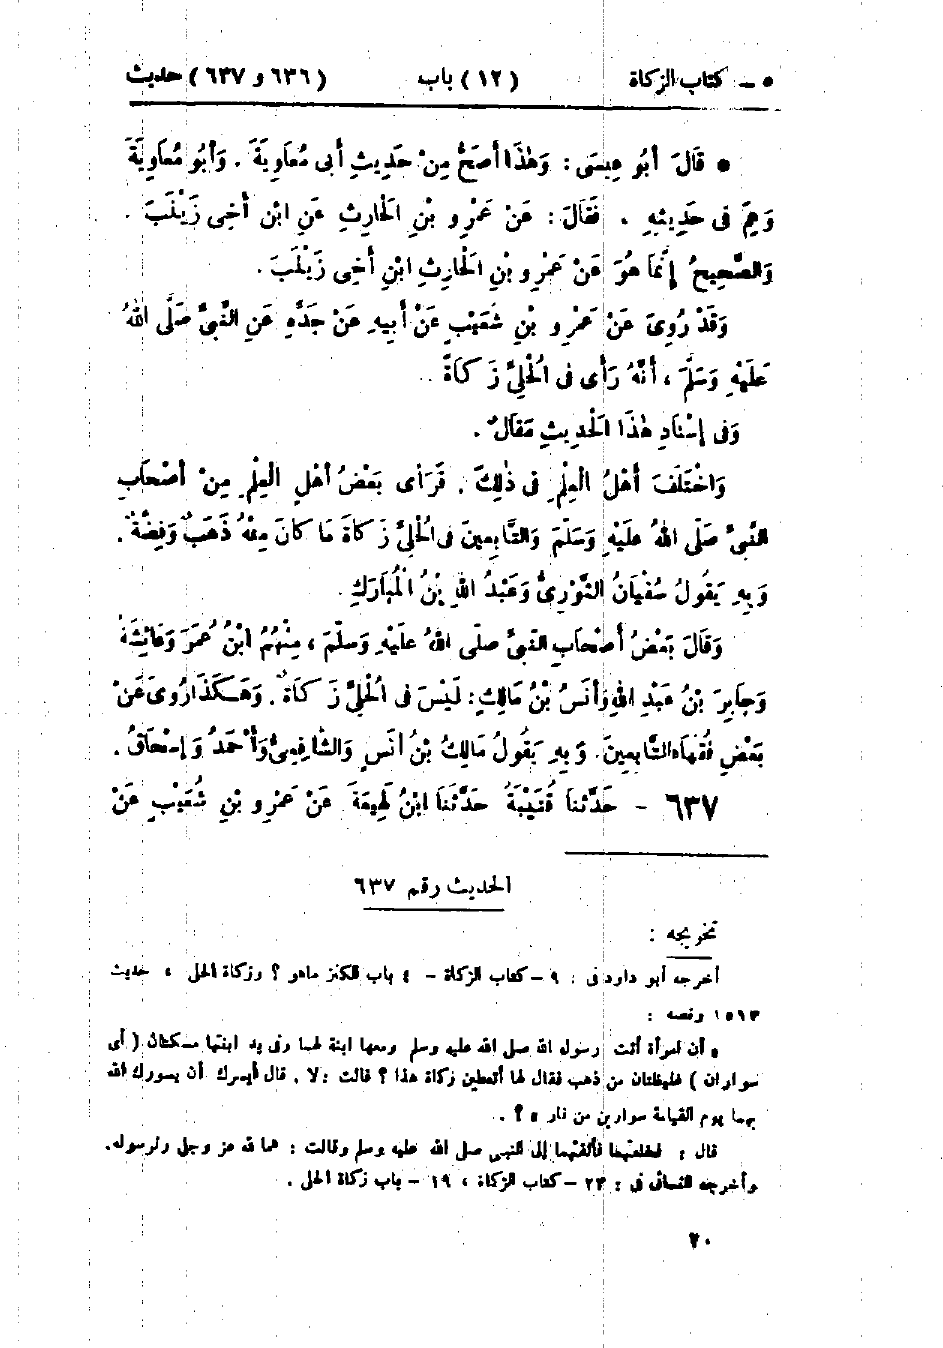 ٥ – كتاب الزكاة (١٢) باب (٦٣٦ و ٦٣٧) حديث
● قَالَ أَبُو عِيسَى : وَهٰذَا أَصَحُّ مِنْ حَدِيثِ أَبِى مُعَاوِيَةَ . وَأَبُو مُعَاوِيَةَ
وَهِمَ فى حَدِيثِهِ . فَقَالَ : عَنْ عَمْرِو بْنِ الْحَارِثِ عَنِ ابْنِ أَخِى زَيْنَبَ .
وَالصَّحِيحُ إِنَّمَا هُوَ عَنْ عَمْرِو بْنِ الْحَارِثِ ابْنِ أَخِى زَيْنَبَ .
وَقَدْ رُوِىَ عَنْ عَمْرِو بْنِ شُعَيْبٍ عَنْ أَبِيهِ عَنْ جَدِّهِ عَنِ النَّبِىِّ صَلَّى اللهُ
عَلَيْهِ وَسَلَّمَ ، أَنَّهُ رَأَى فى الْحُلِىِّ زَكَاةً .
وَفى إِسْنَادِ هٰذَا الْحَدِيثِ مَقَالٌ .
وَاخْتَلَفَ أَهْلُ الْعِلْمِ فى ذٰلِكَ . فَرَأَى بَعْضُ أَهْلِ الْعِلْمِ مِنْ أَصْحَابِ
النَّبِىِّ صَلَّى اللهُ عَلَيْهِ وَسَلَّمَ وَالتَّابِعِينَ فى الْحُلِىِّ زَكَاةَ مَا كَانَ مِنْهُ ذَهَبٌ وَفِضَّةٌ .
وَبِهِ يَقُولُ سُفْيَانُ الثَّوْرِىُّ وَعَبْدُ اللهِ بْنُ الْمُبَارَكِ .
وَقَالَ بَعْضُ أَصْحَابِ النَّبِىِّ صَلَّى اللهُ عَلَيْهِ وَسَلَّمَ ، مِنْهُمُ ابْنُ عُمَرَ وَعَائِشَةُ
وَجَابِرُ بْنُ عَبْدِ اللهِ وَأَنَسُ بْنُ مَالِكٍ : لَيْسَ فى الْحُلِىِّ زَكَاةٌ . وَهَـكَذَا رُوِىَ عَنْ
بَعْضِ فُقَهَاءِ التَّابِعِينَ . وَبِهِ يَقُولُ مَالِكُ بْنُ أَنَسٍ وَالشَّافِعِىُّ وَأَحْمَدُ وَإِسْحَاقُ .
٦٣٧ – حَدَّثَنَا قُتَيْبَةُ حَدَّثَنَا ابْنُ لَهِيعَةَ عَنْ عَمْرِو بْنِ شُعَيْبٍ عَنْ
الحديث رقم ٦٣٧
تخريجه :
أخرجه أبو داود فى : ٩ – كتاب الزكاة – ٤ باب الكنز ماهو ؟ وزكاة الحلى ، حديث
١٥٦٣ ونصه :
« أن امرأة أتت رسول الله صلى الله عليه وسلم ومعها ابنة لها وفى يد ابنتها مسكتان ( أى
سواران ) غليظتان من ذهب فقال لها أتعطين زكاة هذا ؟ قالت : لا . قال أيسرك أن يسورك الله
بهما يوم القيامة سوارين من نار » ؟ .
قال : فخلعتهما فألقتهما إلى النبى صلى الله عليه وسلم وقالت : هما لله عز وجل ولرسوله .
وأخرجه النسائى فى : ٢٣ – كتاب الزكاة ، ١٩ – باب زكاة الحلى .
٢٠